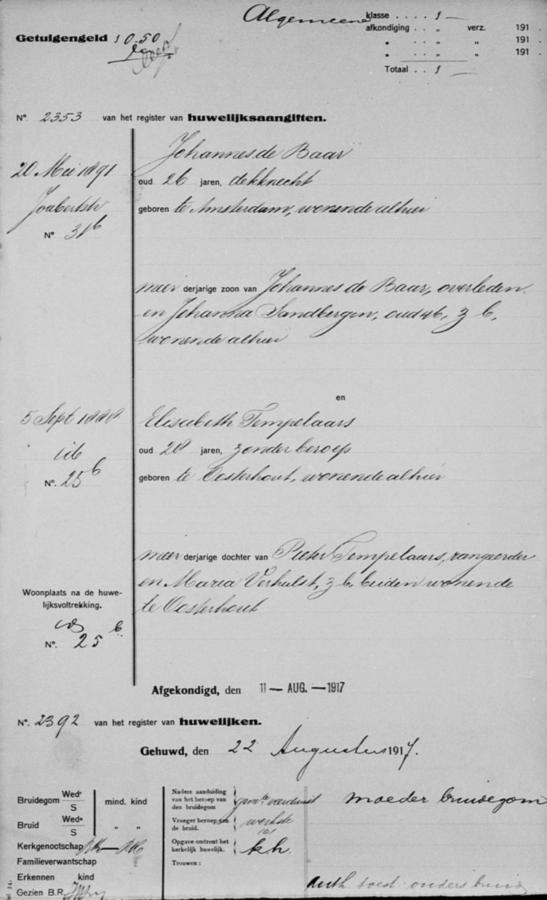 Algemeene klasse . . . . „ 1 —
Getuigengeld 1 0.50
afkondiging . . „ verz. 191 .
„ „ „ 191 .
„ „ „ 191 .
Totaal . . „ 1 —
N°. 2353 van het register van huwelijksaangiften.
20 Mei 1891
Joubertstr
N° 31 b
Johannes de Baar
oud 26 jaren, dekknecht
geboren te Amsterdam, wonende alhier
meer derjarige zoon van Johannes de Baar, overleden
en Johanna Sandbergen, oud 46, z b,
wonende alhier
en
5 Sept
id
N°. 25 b
Elisabeth Tempelaars
oud jaren, zonder beroep
geboren te Oosterhout, wonende alhier
meer derjarige dochter van Pieter Tempelaars, rangeerder
en Maria Verhulst, z b, beiden wonende
te Oosterhout
Woonplaats na de huwe-
lijksvoltrekking.
N°. 25 b
Afgekondigd, den 11 — AUG. — 1917
N°. 2392 van het register van huwelijken.
Gehuwd, den 22 Augustus 1917.
Bruidegom Wedr S mind. kind
Bruid Wede S „ „
Kerkgenootschap
Familieverwantschap
Erkennen kind
Gezien B.R.
Nadere aanduiding
van het beroep van
den bruidegom
Vroeger beroep van
de bruid.
Opgave omtrent het
kerkelijk huwelijk.
Trouwen :
k.h.
moeder bruidegom
auth. toest. ouders bruid